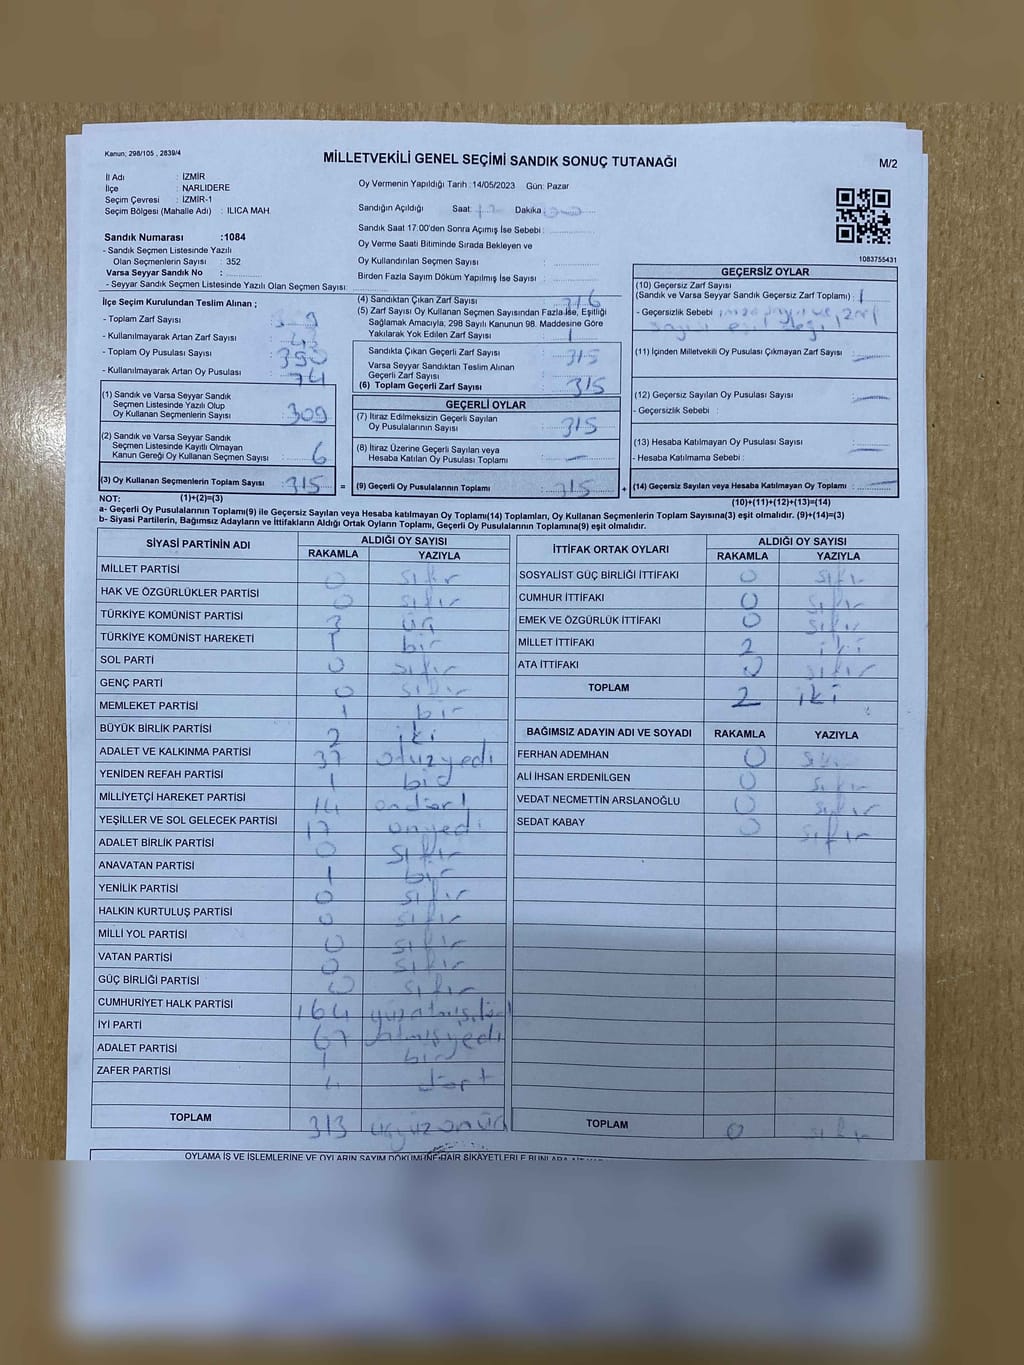 Kanun; 298/105 , 2839/4
MİLLETVEKİLİ GENEL SEÇİMİ SANDIK SONUÇ TUTANAĞI
M/2
İl Adı : İZMİR
İlçe : NARLIDERE
Seçim Çevresi : İZMİR-1
Seçim Bölgesi (Mahalle Adı) : ILICA MAH.
Sandık Numarası :1084
- Sandık Seçmen Listesinde Yazılı
Olan Seçmenlerin Sayısı : 352
Varsa Seyyar Sandık No :
- Seyyar Sandık Seçmen Listesinde Yazılı Olan Seçmen Sayısı:
Oy Vermenin Yapıldığı Tarih :14/05/2023 Gün: Pazar
Sandığın Açıldığı Saat: Dakika
Sandık Saat 17:00'den Sonra Açımış İse Sebebi :
Oy Verme Saati Bitiminde Sırada Bekleyen ve
Oy Kullandırılan Seçmen Sayısı :
Birden Fazla Sayım Döküm Yapılmış İse Sayısı :
1083755431
İlçe Seçim Kurulundan Teslim Alınan ;
- Toplam Zarf Sayısı :
- Kullanılmayarak Artan Zarf Sayısı :
- Toplam Oy Pusulası Sayısı : 390
- Kullanılmayarak Artan Oy Pusulası : 74
(1) Sandık ve Varsa Seyyar Sandık
Seçmen Listesinde Yazılı Olup
Oy Kullanan Seçmenlerin Sayısı : 309
(2) Sandık ve Varsa Seyyar Sandık
Seçmen Listesinde Kayıtlı Olmayan
Kanun Gereği Oy Kullanan Seçmen Sayısı : 6
(3) Oy Kullanan Seçmenlerin Toplam Sayısı : 315 =
(4) Sandıktan Çıkan Zarf Sayısı : 316
(5) Zarf Sayısı Oy Kullanan Seçmen Sayısından Fazla İse, Eşitliği
Sağlamak Amacıyla; 298 Sayılı Kanunun 98. Maddesine Göre
Yakılarak Yok Edilen Zarf Sayısı : 1
Sandıkta Çıkan Geçerli Zarf Sayısı : 315
Varsa Seyyar Sandıktan Teslim Alınan
Geçerli Zarf Sayısı :
(6) Toplam Geçerli Zarf Sayısı : 315
GEÇERLİ OYLAR
(7) İtiraz Edilmeksizin Geçerli Sayılan
Oy Pusulalarının Sayısı : 315
(8) İtiraz Üzerine Geçerli Sayılan veya
Hesaba Katılan Oy Pusulası Toplamı : —
(9) Geçerli Oy Pusulalarının Toplamı : 315 +
GEÇERSİZ OYLAR
(10) Geçersiz Zarf Sayısı
(Sandık ve Varsa Seyyar Sandık Geçersiz Zarf Toplamı) : 1
- Geçersizlik Sebebi : imza sayısı ve zarf
sayısı eşit değil
(11) İçinden Milletvekili Oy Pusulası Çıkmayan Zarf Sayısı : —
(12) Geçersiz Sayılan Oy Pusulası Sayısı : —
- Geçersizlik Sebebi :
(13) Hesaba Katılmayan Oy Pusulası Sayısı : —
- Hesaba Katılmama Sebebi :
(14) Geçersiz Sayılan veya Hesaba Katılmayan Oy Toplamı : —
NOT: (1)+(2)=(3)
(10)+(11)+(12)+(13)=(14)
a- Geçerli Oy Pusulalarının Toplamı(9) ile Geçersiz Sayılan veya Hesaba katılmayan Oy Toplamı(14) Toplamları, Oy Kullanan Seçmenlerin Toplam Sayısına(3) eşit olmalıdır. (9)+(14)=(3)
b- Siyasi Partilerin, Bağımsız Adayların ve İttifakların Aldığı Ortak Oyların Toplamı, Geçerli Oy Pusulalarının Toplamına(9) eşit olmalıdır.
SİYASİ PARTİNİN ADI ALDIĞI OY SAYISI
RAKAMLA YAZIYLA
MİLLET PARTİSİ 0 sıfır
HAK VE ÖZGÜRLÜKLER PARTİSİ 0 sıfır
TÜRKİYE KOMÜNİST PARTİSİ 3 üç
TÜRKİYE KOMÜNİST HAREKETİ 1 bir
SOL PARTİ 0 sıfır
GENÇ PARTİ 0 sıfır
MEMLEKET PARTİSİ 1 bir
BÜYÜK BİRLİK PARTİSİ 2 iki
ADALET VE KALKINMA PARTİSİ 37 otuzyedi
YENİDEN REFAH PARTİSİ 1 bir
MİLLİYETÇİ HAREKET PARTİSİ 14 ondört
YEŞİLLER VE SOL GELECEK PARTİSİ 17 onyedi
ADALET BİRLİK PARTİSİ 0 sıfır
ANAVATAN PARTİSİ 1 bir
YENİLİK PARTİSİ 0 sıfır
HALKIN KURTULUŞ PARTİSİ 0 sıfır
MİLLİ YOL PARTİSİ 0 sıfır
VATAN PARTİSİ 0 sıfır
GÜÇ BİRLİĞİ PARTİSİ 0 sıfır
CUMHURİYET HALK PARTİSİ 164 yüzatmışdört
İYİ PARTİ 67 atmışyedi
ADALET PARTİSİ 1 bir
ZAFER PARTİSİ 4 dört
TOPLAM 313 üçyüzonüç
İTTİFAK ORTAK OYLARI ALDIĞI OY SAYISI
RAKAMLA YAZIYLA
SOSYALİST GÜÇ BİRLİĞİ İTTİFAKI 0 sıfır
CUMHUR İTTİFAKI 0 sıfır
EMEK VE ÖZGÜRLÜK İTTİFAKI 0 sıfır
MİLLET İTTİFAKI 2 iki
ATA İTTİFAKI 0 sıfır
TOPLAM 2 iki
BAĞIMSIZ ADAYIN ADI VE SOYADI RAKAMLA YAZIYLA
FERHAN ADEMHAN 0 sıfır
ALİ İHSAN ERDENİLGEN 0 sıfır
VEDAT NECMETTİN ARSLANOĞLU 0 sıfır
SEDAT KABAY 0 sıfır
TOPLAM 0 sıfır
OYLAMA İŞ VE İŞLEMLERİNE VE OYLARIN SAYIM DÖKÜMÜNE DAİR ŞİKAYETLERLE BUNLARA